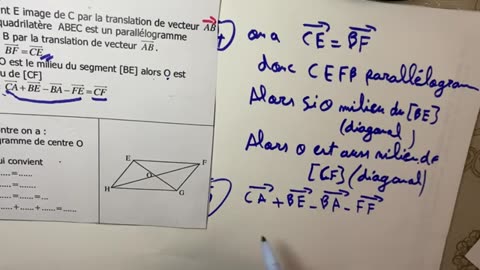 nt E image de C par la translation de vecteur AB
quadrilatère ABEC est un parallélogramme
B par la translation de vecteur AB.
BF = CE
O est le milieu du segment [BE] alors O est
u de [CF]
CA + BE − BA − FE = CF
entre on a :
gramme de centre O
ui convient
......=......
......=......
......= ......
......=......
...... + ...... + ...... = ......
E
F
O
H
G
on a CE = BF
donc CEFB parallélogram
Alors si O milieu du [BE]
(diagonal)
Alors O est aussi milieu de
[CF] (diagonal)
CA + BE − BA − FF